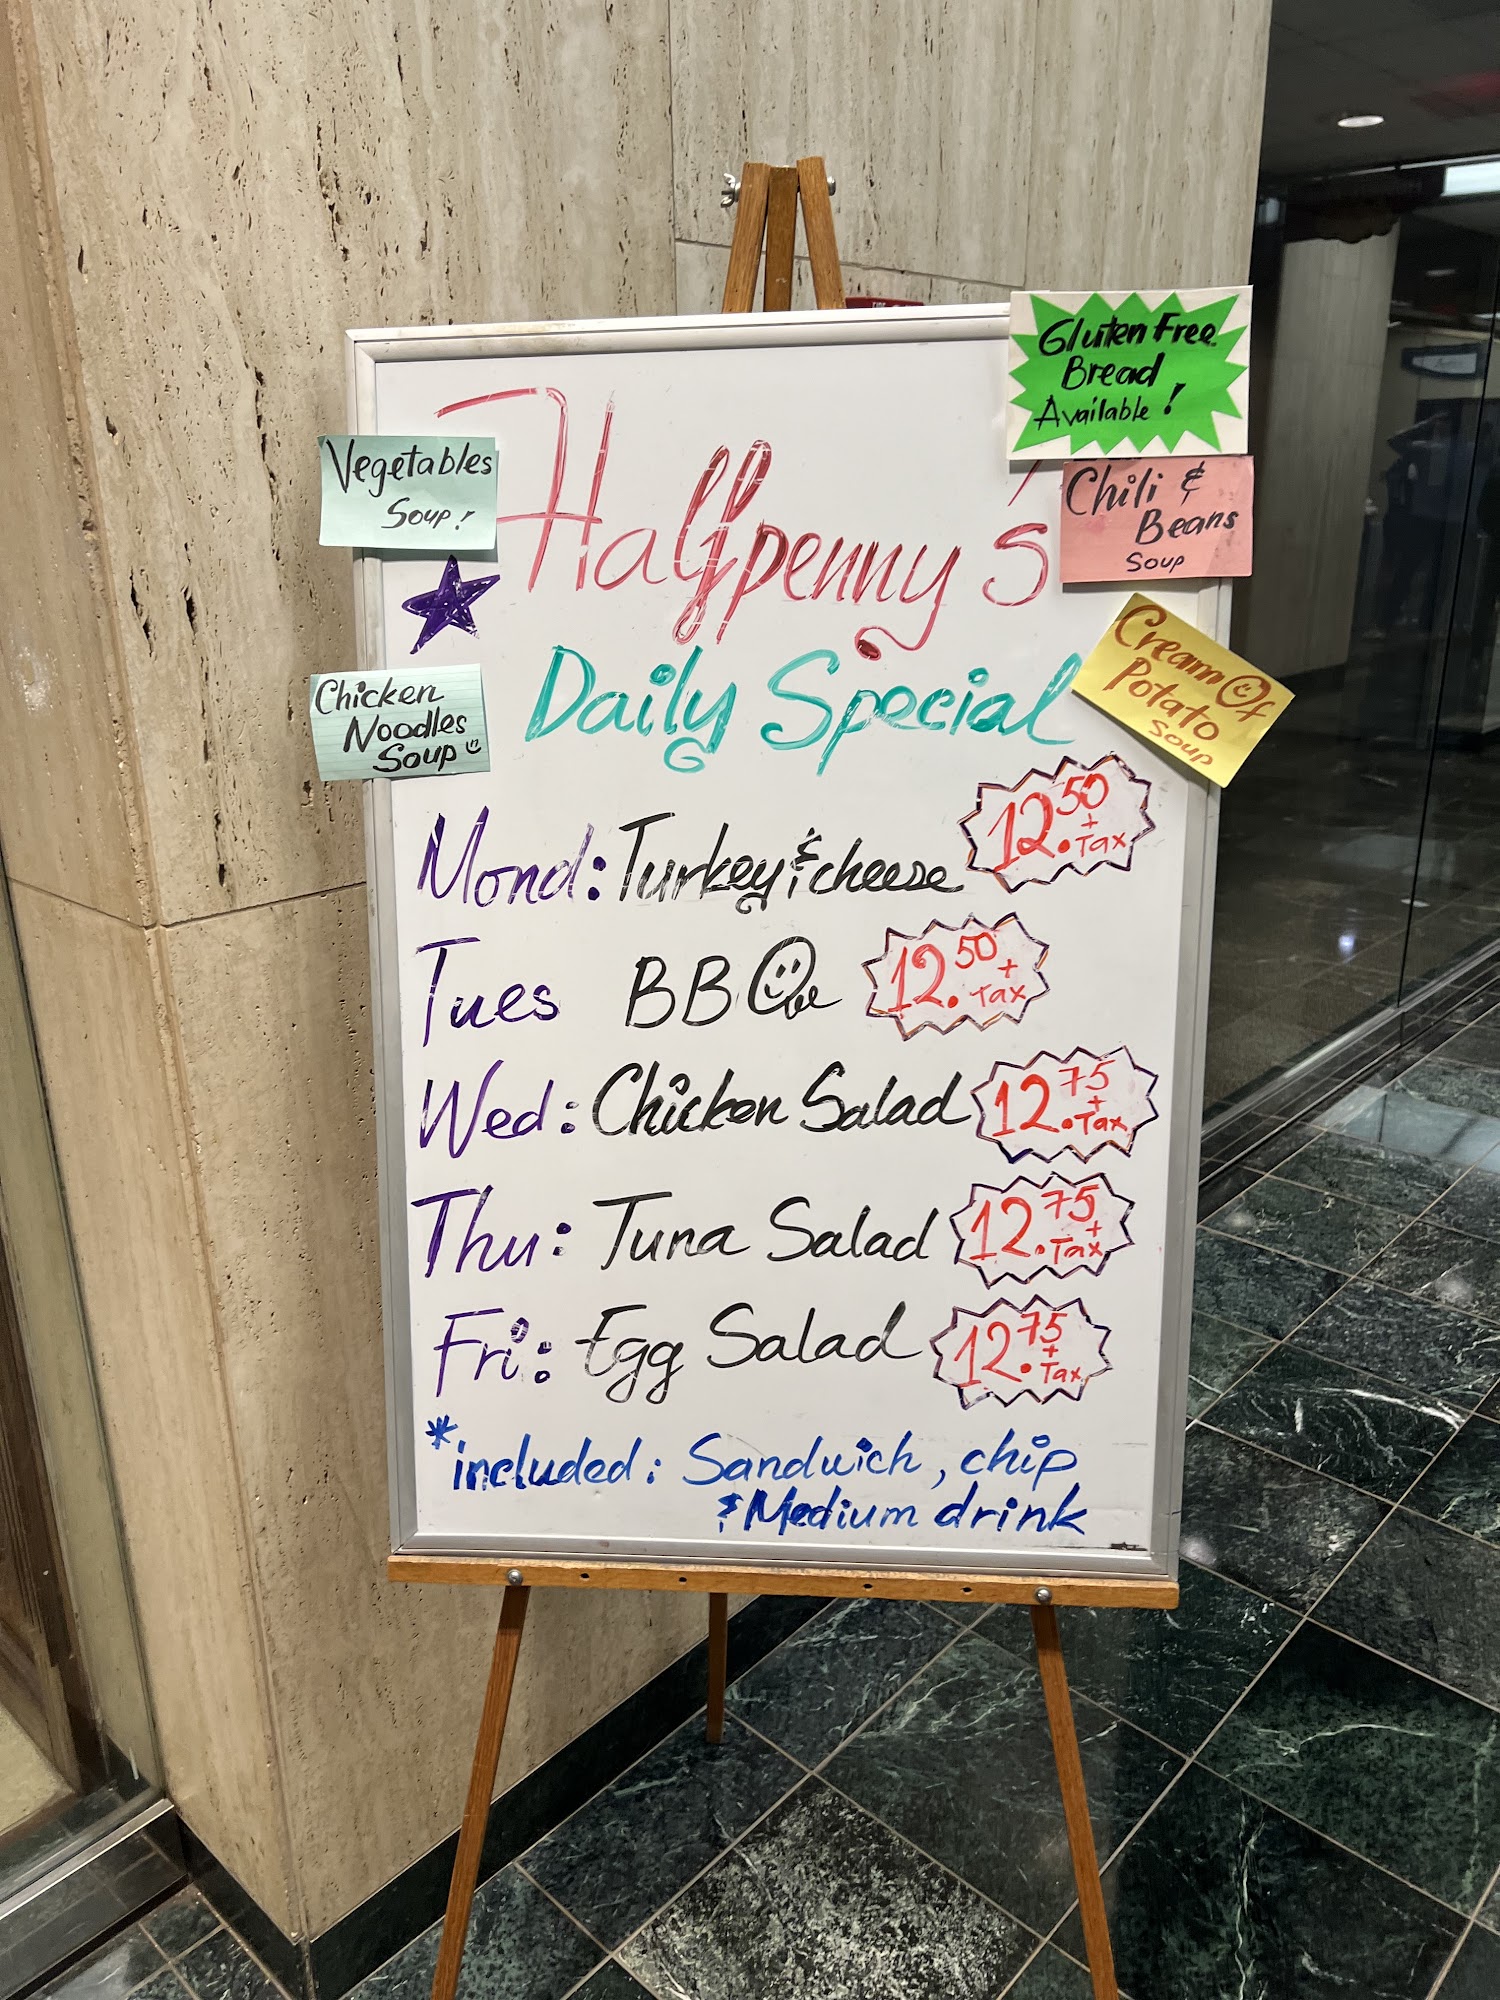 Gluten Free
Bread
Available!
Vegetables
Soup!
Chili &
Beans
Soup
Halfpenny's
Cream Of
Potato
Soup
Chicken
Noodles
Soup
Daily Special
Mond: Turkey & cheese 12.50 + Tax
Tues BBQue 12.50 + Tax
Wed: Chicken Salad 12.75 + Tax
Thu: Tuna Salad 12.75 + Tax
Fri: Egg Salad 12.75 + Tax
*included: Sandwich, chip
& Medium drink